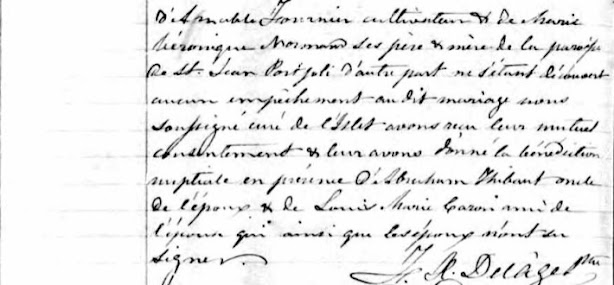 d'Amable Fournier cultivateur & de Marie
Véronique Normand ses père & mère de la paroisse
de St. Jean Port joli d'autre part ne s'étant découvert
aucun empêchement au dit mariage nous
soussigné curé de l'Islet avons reçu leur mutuel
consentement & leur avons donné la bénédiction
nuptiale en présence d'Abraham Thibaut oncle
de l'époux & de Louis Marie Caron ami de
l'épouse qui ainsi que les époux n'ont su
signer.
F. X. Delâge Ptre